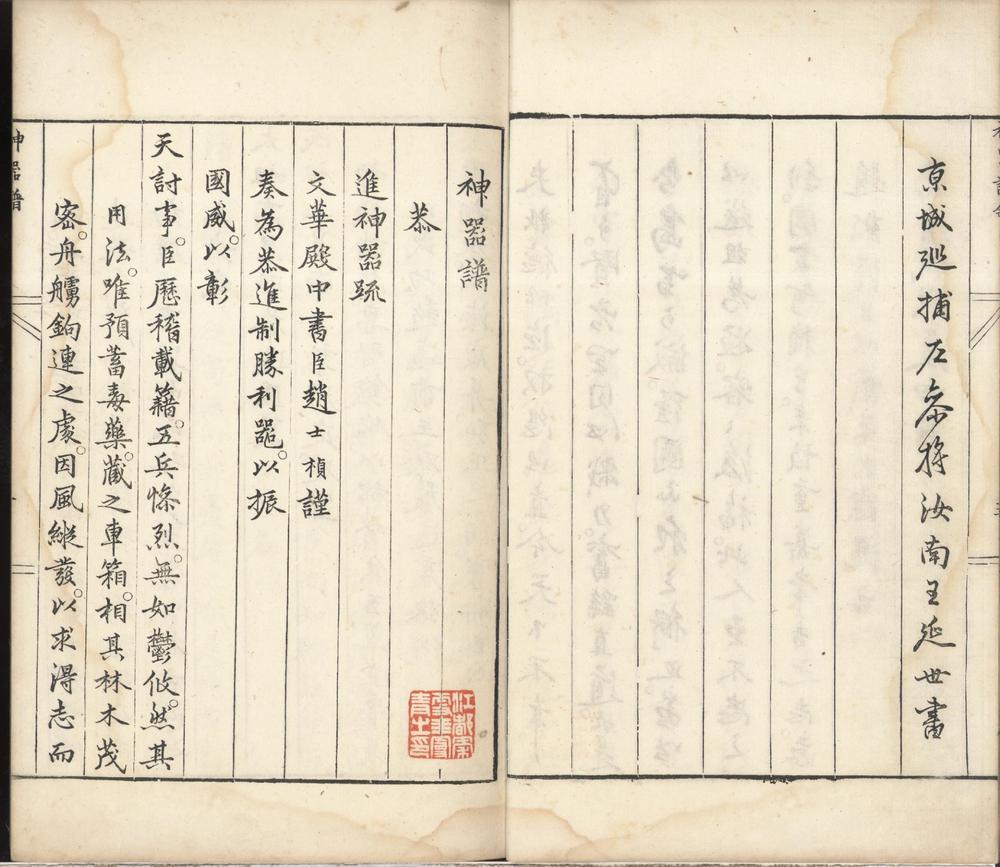 京城巡捕左叅將汝南王延世書
神器譜
恭
進神器疏
文華殿中書臣趙士楨謹
奏為恭進制勝利器。以振
國威。以彰
天討事。臣歷稽載籍。五兵慘烈。無如鬱攸。然其
用法。唯預蓄毒藥。藏之車箱。相其林木茂
密。舟艫鉤連之處。因風縱發。以求得志而
神器譜